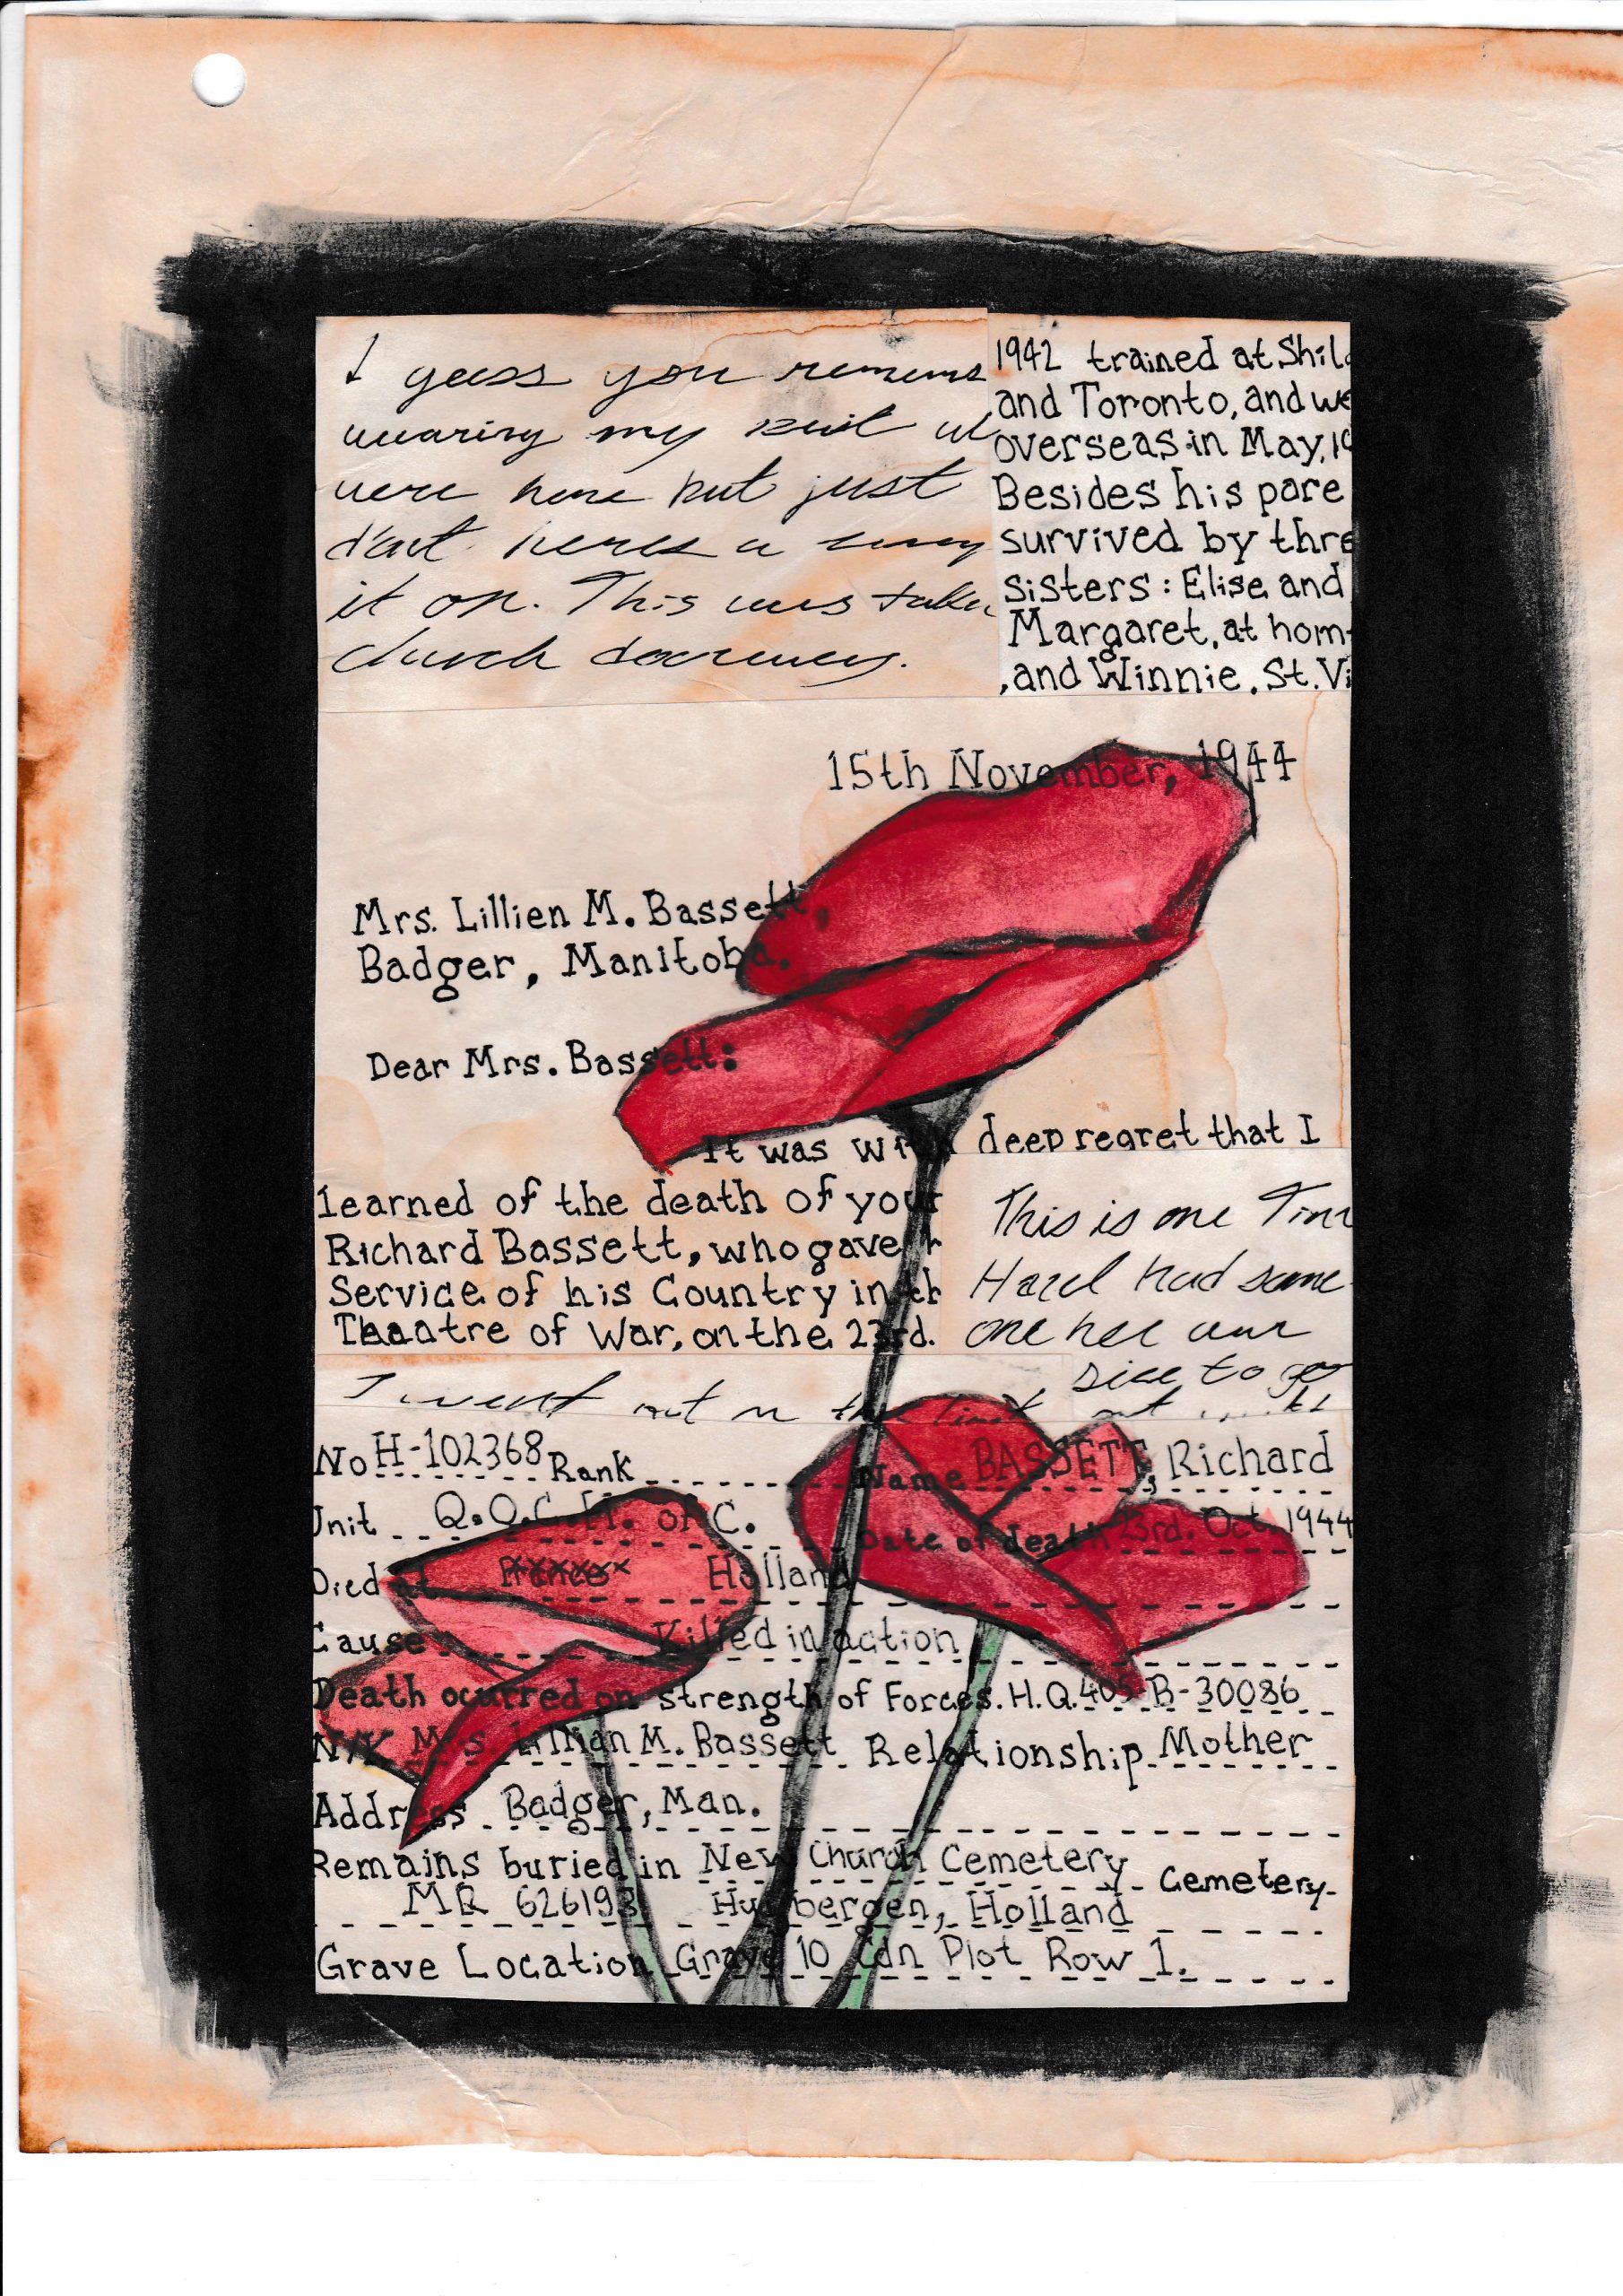 I guess you remem
wearing my suit w
were here but just
dont heres a
it on. This was taken
church doorway.
1942 trained at Shil
and Toronto, and we
overseas in May, 19
Besides his pare
survived by thre
sisters: Elise and
Margaret, at hom
, and Winnie, St. Vi
15th November, 1944
Mrs. Lillien M. Bassett,
Badger, Manitoba.
Dear Mrs. Bassett:
It was with deep regret that I
learned of the death of your
Richard Bassett, who gave h
Service of his Country in th
Theatre of War, on the 23rd.
This is one Tim
Hazel had some
one her
size to go
I went out on the
No H-102368 Rank Name BASSETT, Richard
Unit Q.O.C.H. of C. Date of death 23rd. Oct. 1944
Died at France Holland
Cause Killed in action
Death ocurred on strength of Forces. H.Q. 405-B-30086
N/K Mrs Lillian M. Bassett Relationship Mother
Address Badger, Man.
Remains buried in New Church Cemetery Cemetery
MR 626193 Huijbergen, Holland
Grave Location Grave 10 Cdn Plot Row 1.